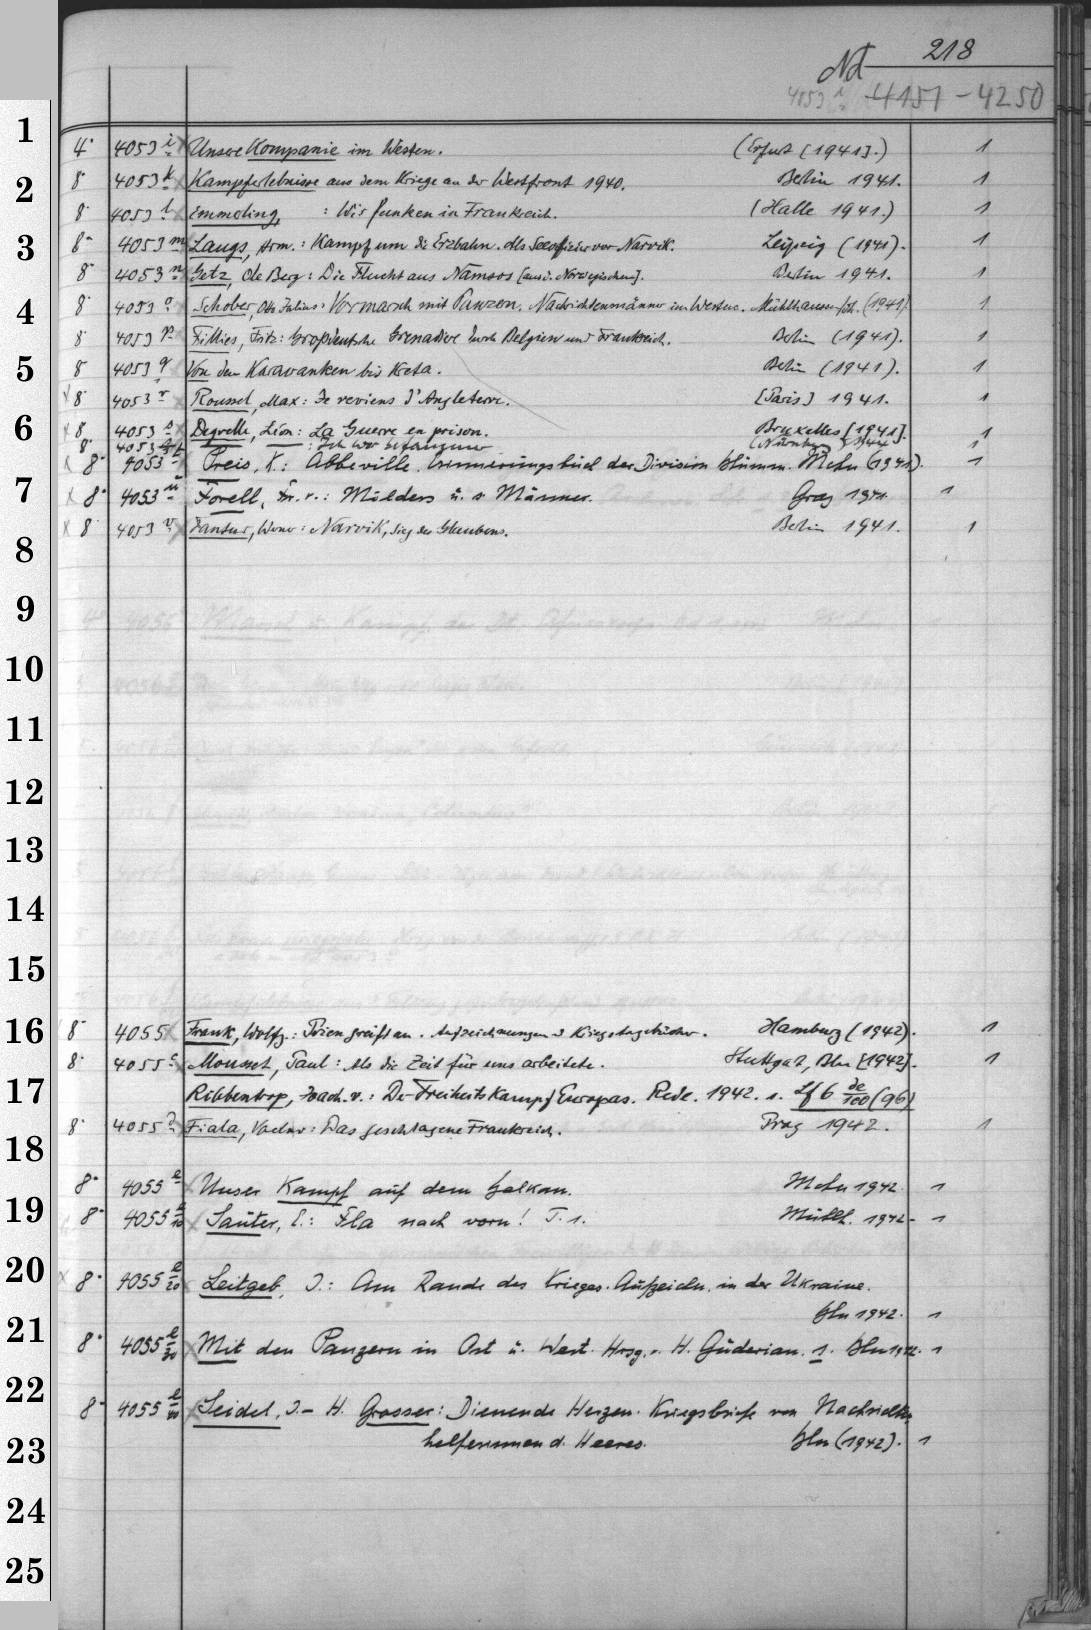 218
Nd
4053 i 4151 - 4250
1
4° 4053 i Unsere Kompanie im Westen. (Erfurt [1941].) 1
8° 4053 k Kampferlebnisse aus dem Kriege an der Westfront 1940. Berlin 1941. 1
2
8° 4053 l Emmoling, : Wir funken in Frankreich. (Halle 1941.) 1
3
8° 4053 m Laugs, Arm.: Kampf um die Erzbahn. Als Seeoffizier vor Narvik. Leipzig (1941). 1
8° 4053 n Getz, Ole Berg: Die Flucht aus Namsos [aus d. Norwegischen]. Berlin 1941. 1
4
8° 4053 o Schober, Otto Julius: Vormarsch mit Panzern. Nachrichtenmänner im Westen. Mühlhausen/Th. (1941). 1
8° 4053 p Fillies, Fritz: Großdeutsche Grenadiere durch Belgien und Frankreich. Berlin (1941). 1
5
8° 4053 q Von den Karavanken bis Kreta. Berlin (1941). 1
8° 4053 r Roussel, Max: Je reviens d'Angleterre. [Paris] 1941. 1
6
8° 4053 s Degrelle, Léon: La Guerre en prison. Bruxelles [1941]. 1
8° 4053 : Ich war Gefangener (Nürnberg 1
8° 4053 t Preis, K.: Abbeville. Erinnerungsbuch der Division Blümm. Mchn (1941). 1
7
8° 4053 u Forell, Fr. v.: Mölders u. s. Männer. Graz 1941. 1
8° 4053 v Jansur, Wern: Narvik, Sieg des Glaubens. Berlin 1941. 1
8
9
10
11
12
13
14
15
16
8° 4055 Frank, Wolfg.: Prien greift an. Aufzeichnungen u Kriegstagebücher. Hamburg (1942). 1
8° 4055 c Mousset, Paul: Als die Zeit für uns arbeitete. Stuttgart, Bln [1942]. 1
17
Ribbentrop, Joach. v.: Der Freiheitskampf Europas. Rede. 1942. s. Lf 6 de/100 (96)
8° 4055 Fiala, Vaclav: Das geschlagene Frankreich. Prag 1942. 1
18
8° 4055 e Unser Kampf auf dem Balkan. Mchn 1942. 1
19
8° 4055 e/10 Sauter, E.: Fla nach vorn! T. 1. Mühlh. 1942. 1
20
8° 4055 e/20 Leitgeb, J.: Am Rande des Krieges. Aufzeichn. in der Ukraine.
Bln 1942. 1
21
8° 4055 e/30 Mit den Panzern in Ost u. West. Hrsg. v. H. Guderian. 1. Bln 1942. 1
22
8° 4055 e/40 Seidel, I. - H. Grosser: Dienende Herzen. Kriegsbriefe von Nachrichten
helferinnen d. Heeres. Bln (1942). 1
23
24
25